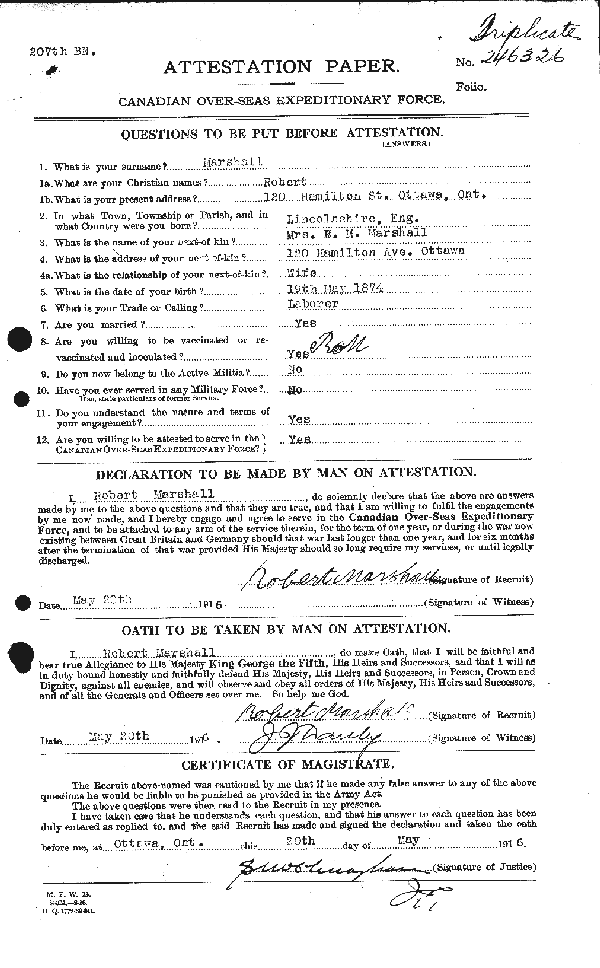 Triplicate
207th BN.
No. 246326
ATTESTATION PAPER.
Folio.
CANADIAN OVER-SEAS EXPEDITIONARY FORCE.
QUESTIONS TO BE PUT BEFORE ATTESTATION.
(ANSWERS)
1. What is your surname? Marshall
1a. What are your Christian names? Robert
1b. What is your present address? 120 Hamilton St. Ottawa, Ont.
2. In what Town, Township or Parish, and in
what Country were you born? Lincolnshire, Eng.
3. What is the name of your next-of kin? Mrs. E. M. Marshall
4. What is the address of your next-of-kin? 120 Hamilton Ave. Ottawa
4a. What is the relationship of your next-of-kin? Wife
5. What is the date of your birth? 19th May 1874
6. What is your Trade or Calling? Laborer
7. Are you married? Yes
8. Are you willing to be vaccinated or re-
vaccinated and inoculated? Yes RM
9. Do you now belong to the Active Militia? No
10. Have you ever served in any Military Force? No
If so, state particulars of former Service.
11. Do you understand the nature and terms of
your engagement? Yes
12. Are you willing to be attested to serve in the Yes
CANADIAN OVER-SEAS EXPEDITIONARY FORCE?
DECLARATION TO BE MADE BY MAN ON ATTESTATION.
I, Robert Marshall, do solemnly declare that the above are answers
made by me to the above questions and that they are true, and that I am willing to fulfil the engagements
by me now made, and I hereby engage and agree to serve in the Canadian Over-Seas Expeditionary
Force, and to be attached to any arm of the service therein, for the term of one year, or during the war now
existing between Great Britain and Germany should that war last longer than one year, and for six months
after the termination of that war provided His Majesty should so long require my services, or until legally
discharged.
Robert Marshall (Signature of Recruit)
Date May 20th 1916. (Signature of Witness)
OATH TO BE TAKEN BY MAN ON ATTESTATION.
I, Robert Marshall, do make Oath, that I will be faithful and
bear true Allegiance to His Majesty King George the Fifth, His Heirs and Successors, and that I will as
in duty bound honestly and faithfully defend His Majesty, His Heirs and Successors, in Person, Crown and
Dignity, against all enemies, and will observe and obey all orders of His Majesty, His Heirs and Successors,
and of all the Generals and Officers set over me. So help me God.
Robert Marshall (Signature of Recruit)
Date May 20th 1916. (Signature of Witness)
CERTIFICATE OF MAGISTRATE.
The Recruit above-named was cautioned by me that if he made any false answer to any of the above
questions he would be liable to be punished as provided in the Army Act.
The above questions were then read to the Recruit in my presence.
I have taken care that he understands each question, and that his answer to each question has been
duly entered as replied to, and the said Recruit has made and signed the declaration and taken the oath
before me, at Ottawa, Ont. this 20th day of May 1916.
(Signature of Justice)
M. F. W. 23.